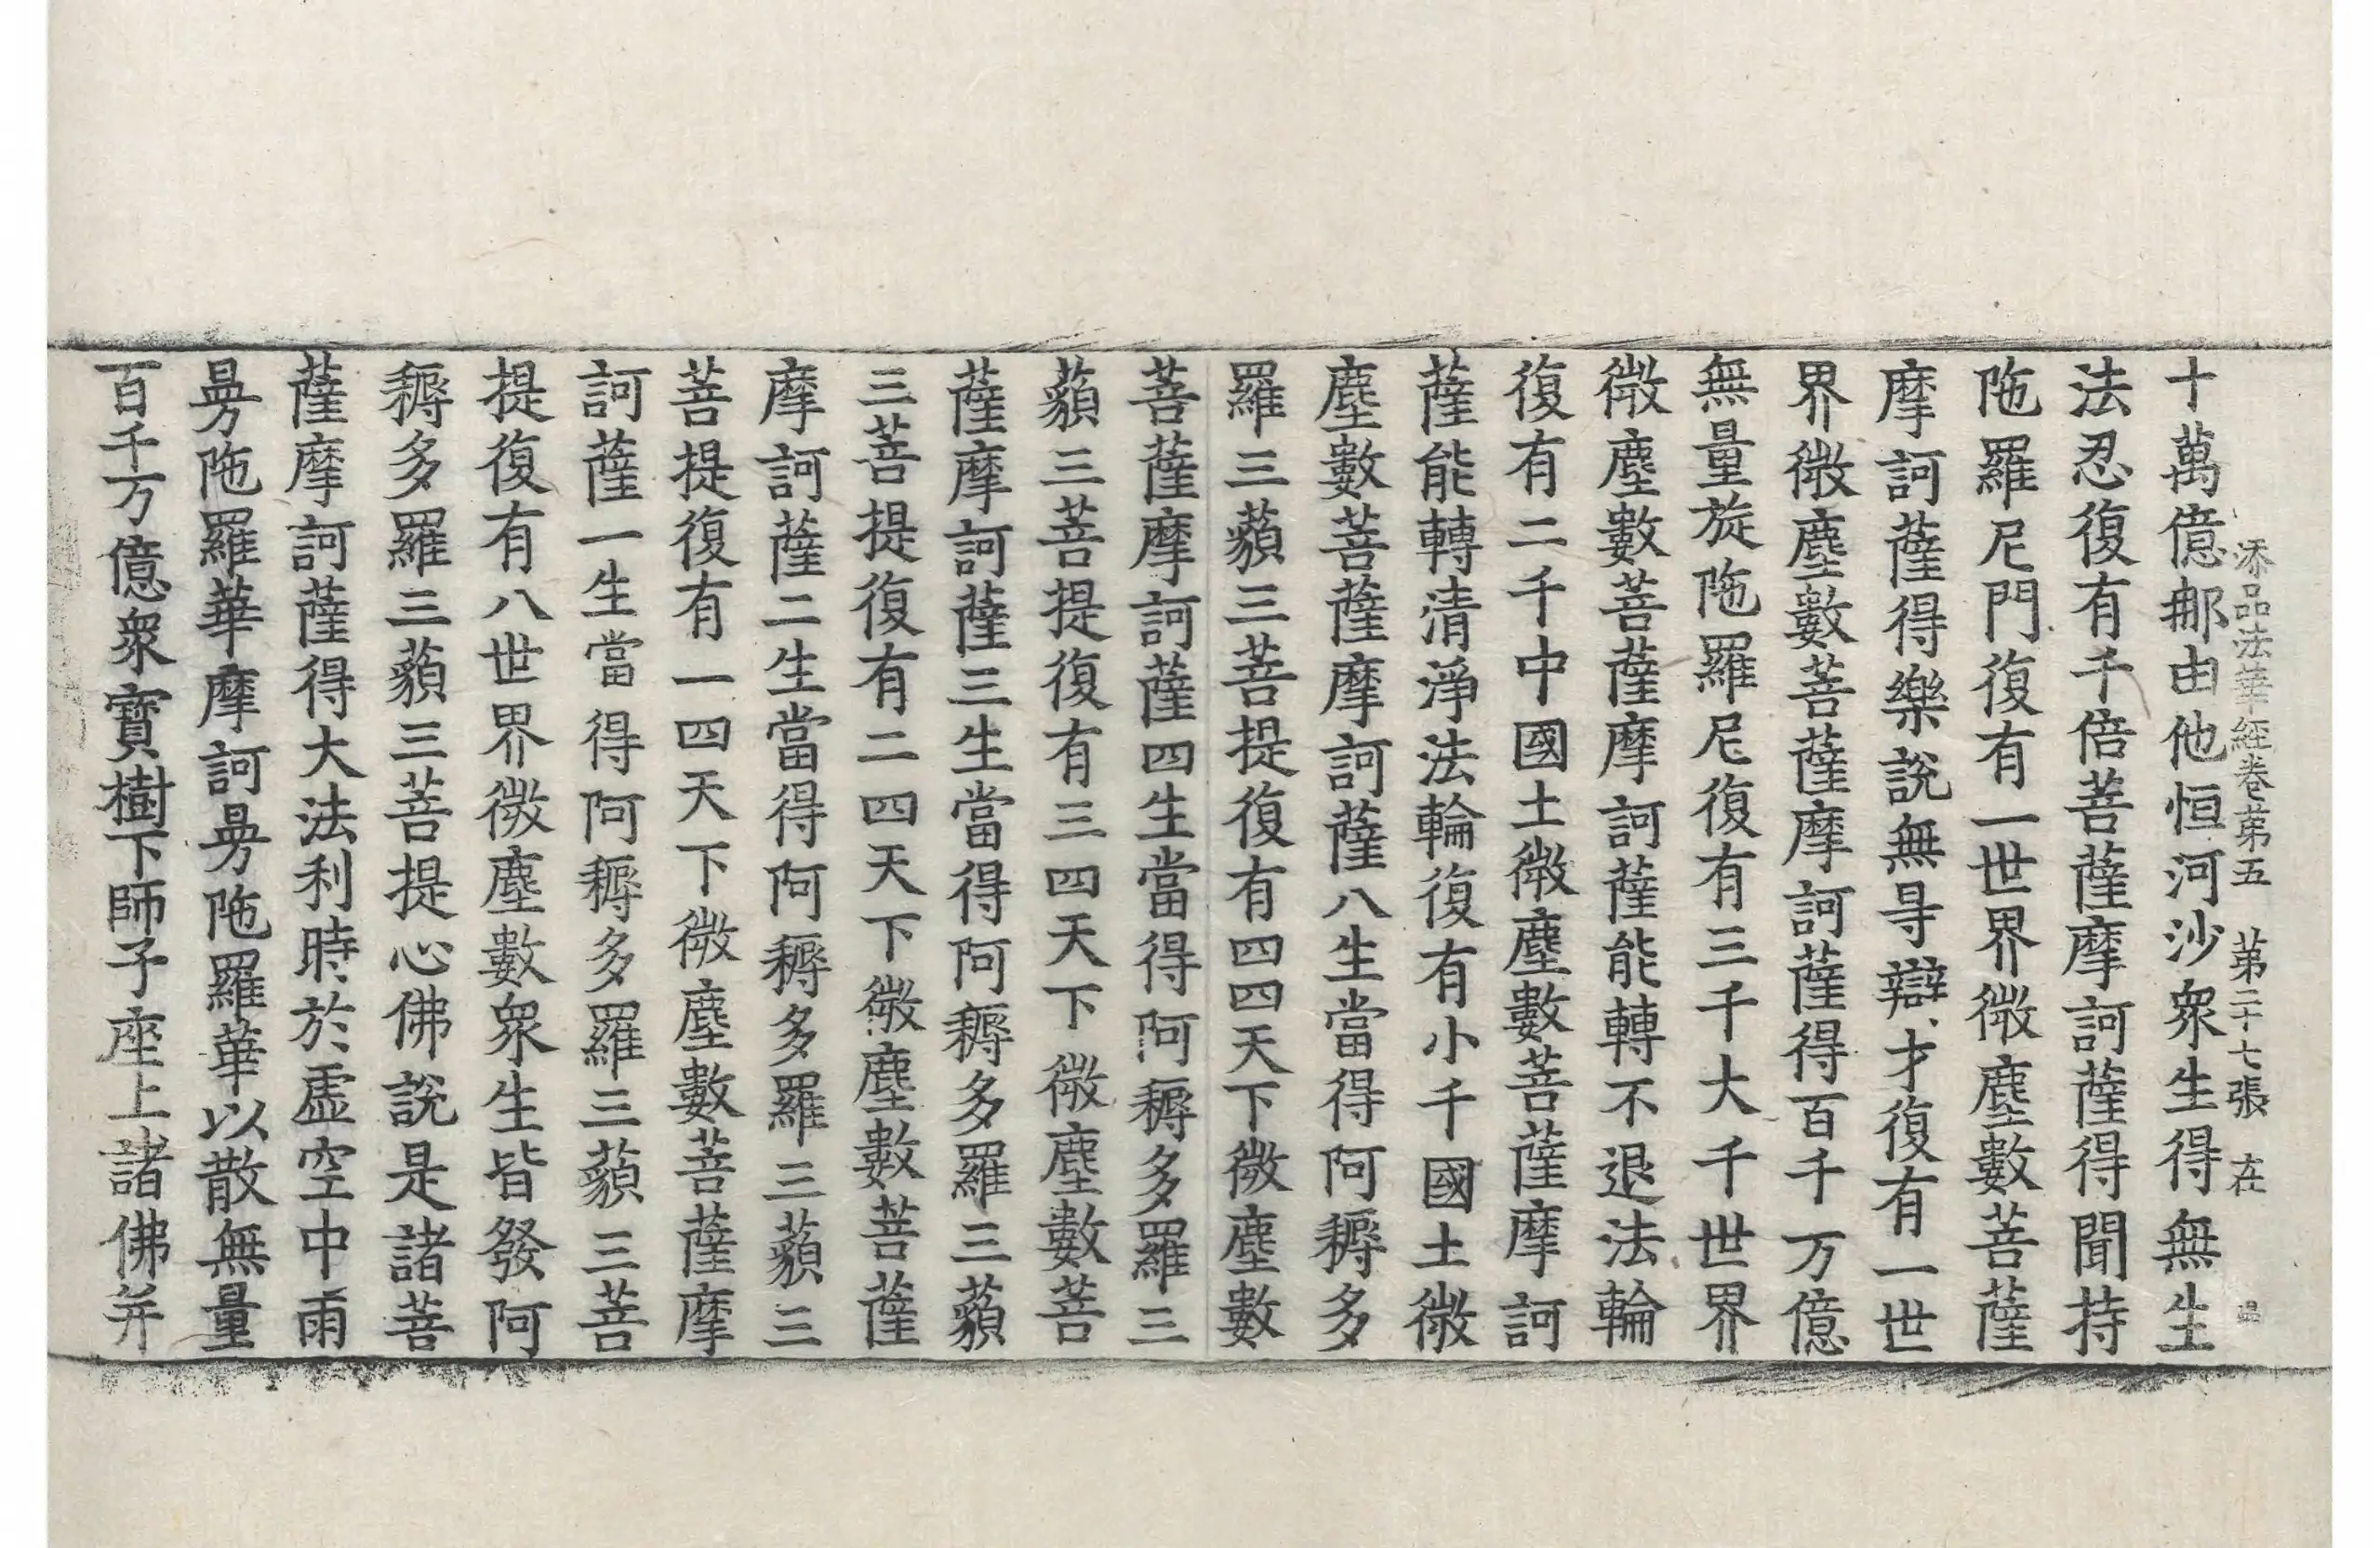 添品法華經卷第五 第二十七張 在
十萬億𨙻由他恒河沙衆生得無生
法忍復有千倍菩薩摩訶薩得聞持
陁羅尼門復有一世界微塵數菩薩
摩訶薩得樂說無㝵辯才復有一世
界微塵數菩薩摩訶薩得百千万億
無量旋陁羅尼復有三千大千世界
微塵數菩薩摩訶薩能轉不退法輪
復有二千中國土微塵數菩薩摩訶
薩能轉清淨法輪復有小千國土微
塵數菩薩摩訶薩八生當得阿耨多
羅三藐三菩提復有四四天下微塵數
菩薩摩訶薩四生當得阿耨多羅三
藐三菩提復有三四天下微塵數菩
薩摩訶薩三生當得阿耨多羅三藐
三菩提復有二四天下微塵數菩薩
摩訶薩二生當得阿耨多羅三藐三
菩提復有一四天下微塵數菩薩摩
訶薩一生當得阿耨多羅三藐三菩
提復有八世界微塵數衆生皆發阿
耨多羅三藐三菩提心佛說是諸菩
薩摩訶薩得大法利時於虛空中雨
曼陁羅華摩訶曼陁羅華以散無量
百千万億衆寶樹下師子座上諸佛并